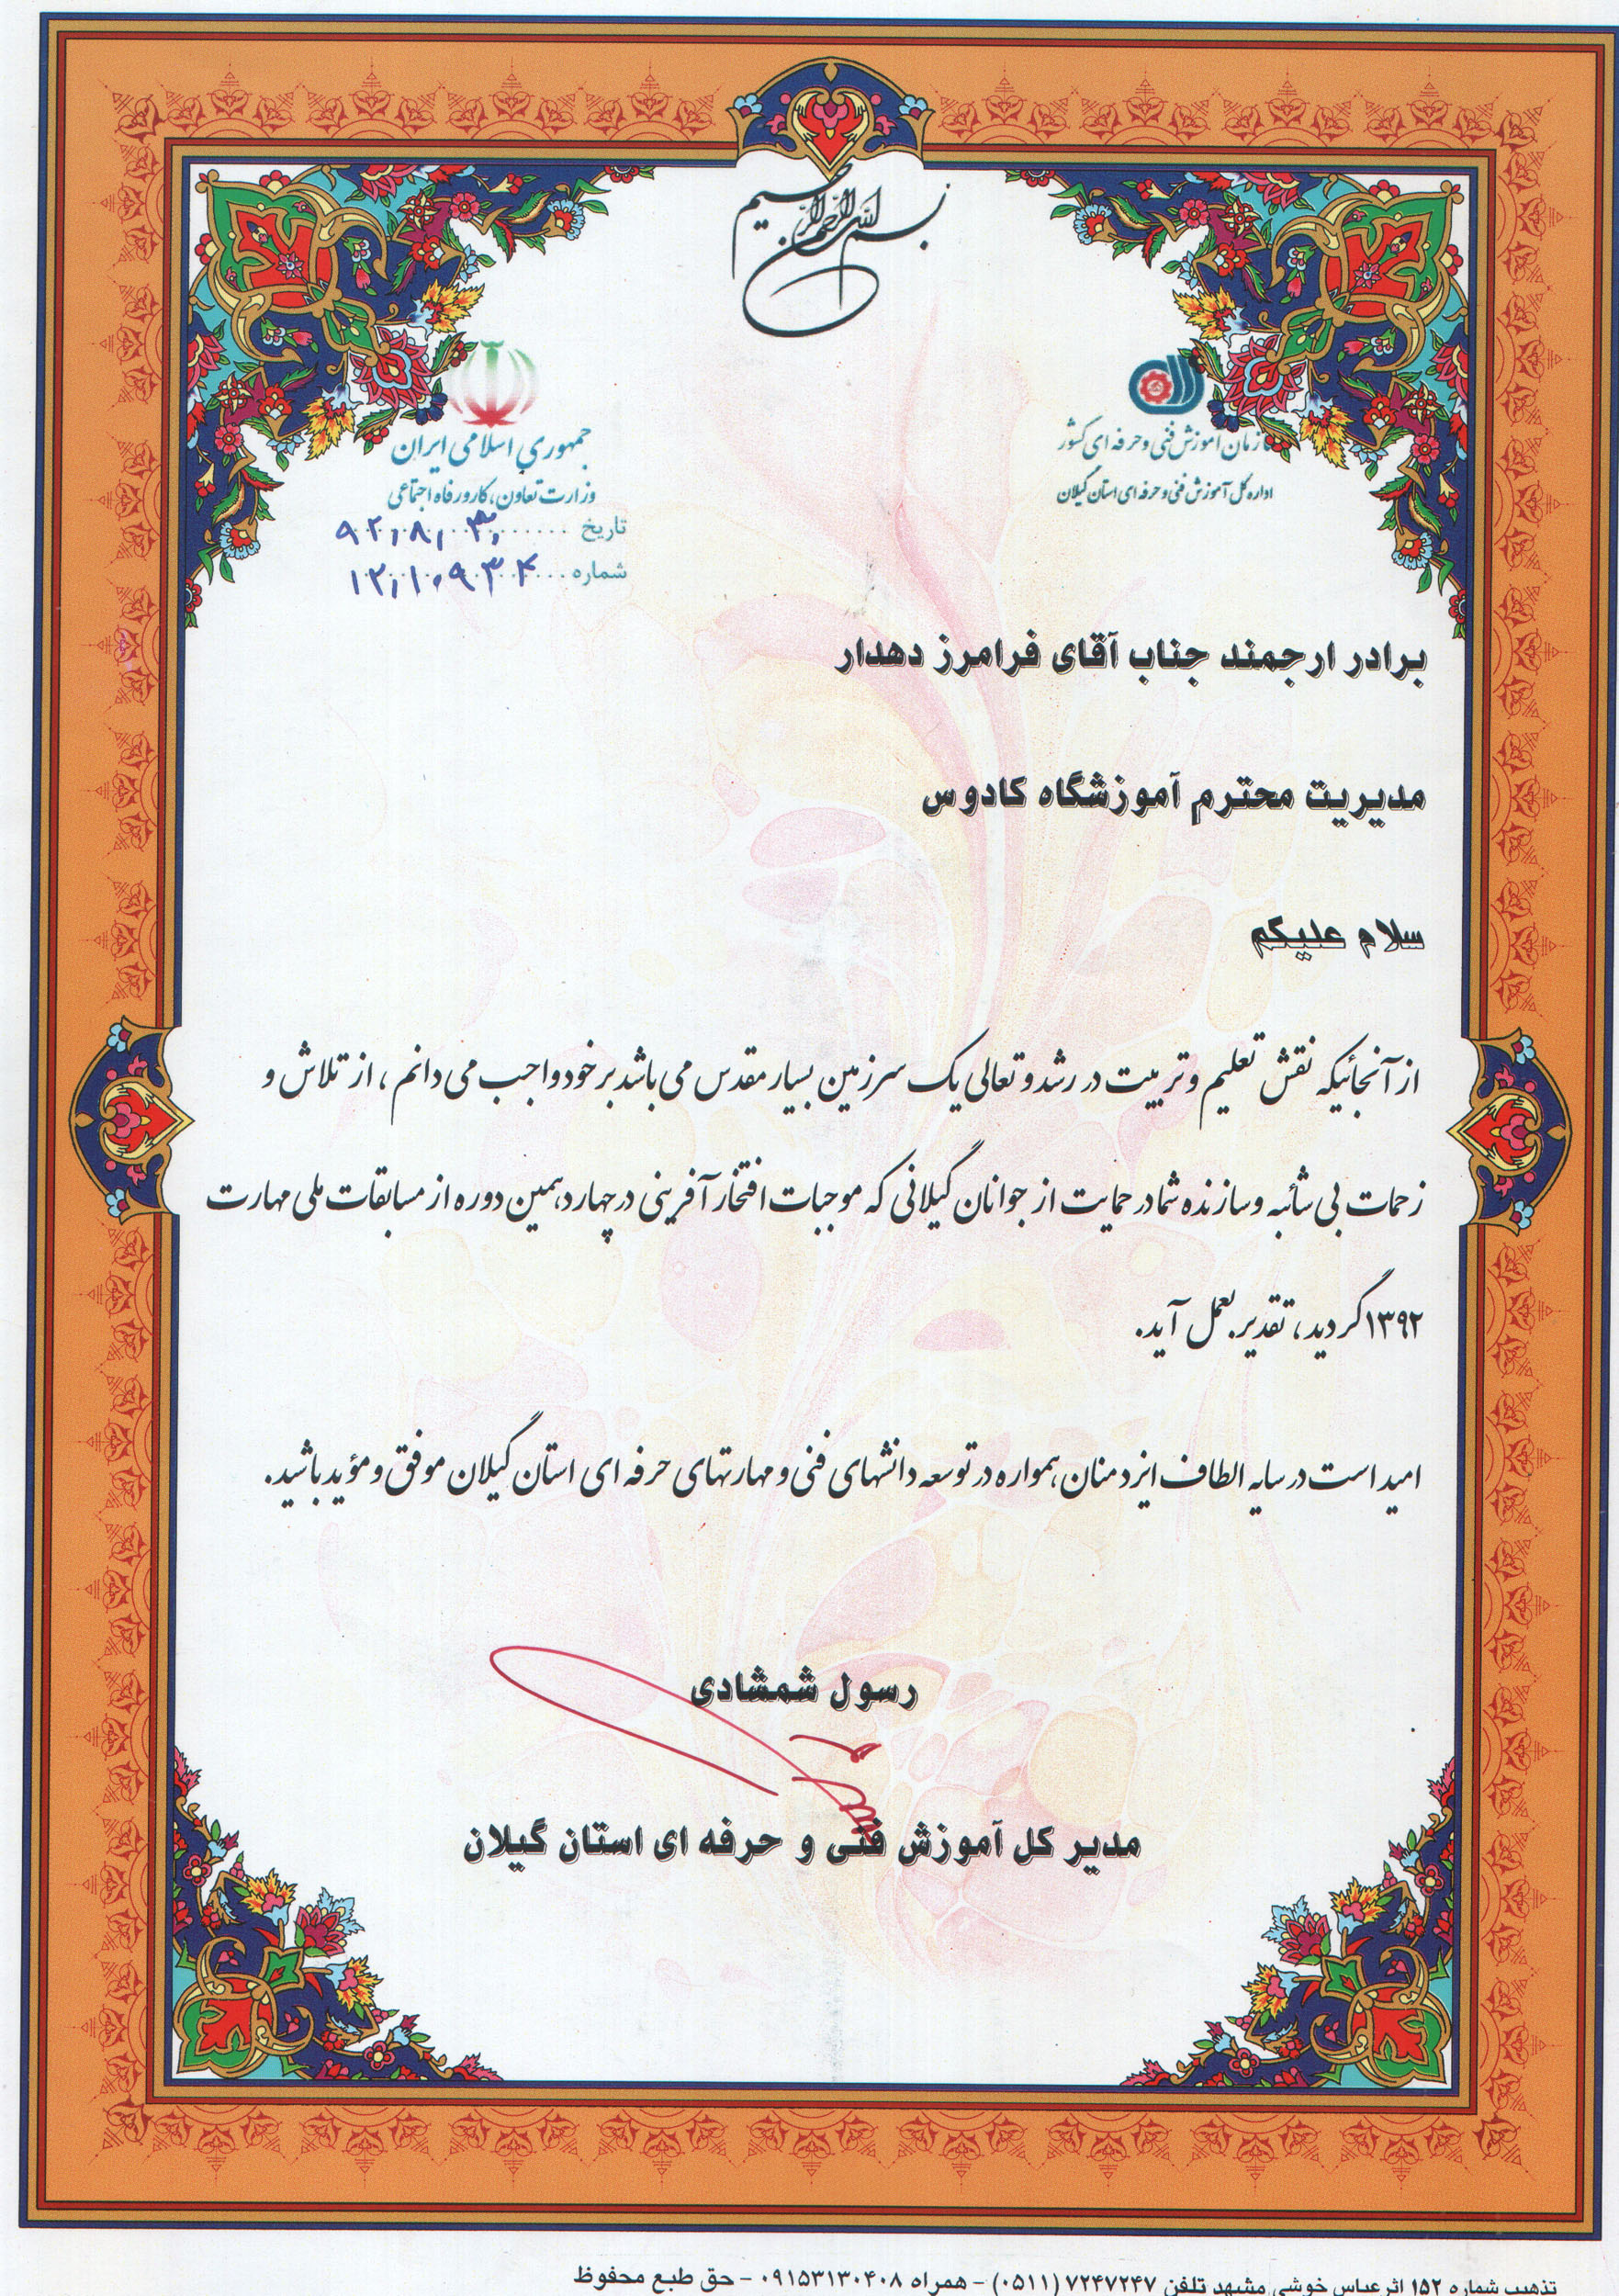 بسم الله الرحمن الرحیم
سازمان آموزش فنی و حرفه ای کشور
اداره کل آموزش فنی و حرفه ای استان گیلان
جمهوری اسلامی ایران
وزارت تعاون، کار و رفاه اجتماعی
تاریخ ۹۲/۸/۳۰
شماره ۱۲/۱۰۹۳۴
برادر ارجمند جناب آقای فرامرز دهدار
مدیریت محترم آموزشگاه کادوس
سلام علیکم
از آنجائیکه نقش تعلیم و تربیت در رشد و تعالی یک سرزمین بسیار مقدس می باشد بر خود واجب می دانم ، از تلاش و
زحمات بی شائبه و سازنده شما در حمایت از جوانان گیلانی که موجبات افتخار آفرینی در چهاردهمین دوره از مسابقات ملی مهارت
۱۳۹۲ گردید، تقدیر بعمل آید.
امید است در سایه الطاف ایزد منان، همواره در توسعه دانشهای فنی و مهارتهای حرفه ای استان گیلان موفق و مؤید باشید.
رسول شمشادی
مدیر کل آموزش فنی و حرفه ای استان گیلان
تذهیب شماره ۱۵۲ اثر عباس خوشی مشهد تلفن ۷۲۴۷۲۴۷ (۰۵۱۱) - همراه ۰۹۱۵۳۱۳۰۴۰۸ - حق طبع محفوظ